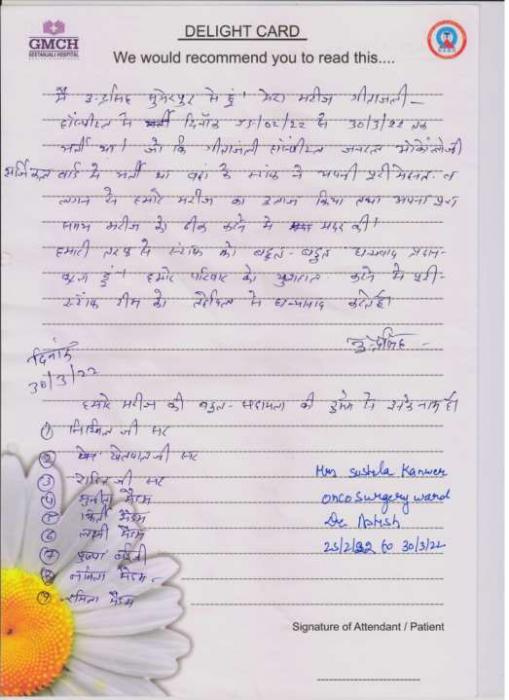 GMCH
GEETANJALI HOSPITAL
DELIGHT CARD
We would recommend you to read this....
मैं उ.प्रसिंह सुमेरपुर से हूं। मेरा मरीज गीतांजली -
हॉस्पीटल में भर्ती दिनॉक 25/02/22 से 30/3/22 तक
भर्ती था। जो कि गीतांजली हॉस्पीटल जनरल ओंकोलोजी
सर्जिकल वार्ड में भर्ती था वहां के स्टाफ ने अपनी पूरी मेहनत व
लगन से हमारे मरीज का इलाज किया तथा अपना पूरा
समय मरीज को ठीक करने में मदद की।
हमारी तरफ से स्टाफ को बहुत-बहुत धन्यवाद प्रदान-
करता हूं। हमारे परिवार को करने में पूरी-
स्टॉफ टीम को तहेदिल से धन्यवाद करते है।
दिनांक
30/3/22
हमारे मरीज की बहुत-सहायता की इसमें से इनके नाम है।
① निखिल जी सर
② खेतपाल जी सर
③ रवि जी सर
④ सुनीता मैडम
⑤ किर्ती मैडम
⑥ लक्ष्मी मैडम
⑦ पुष्पा
⑧ मैडम
⑨ मैडम
Mrs sushila Kanwer
onco surgery ward
Dr. Ashish
25/2/22 to 30/3/22
Signature of Attendant / Patient